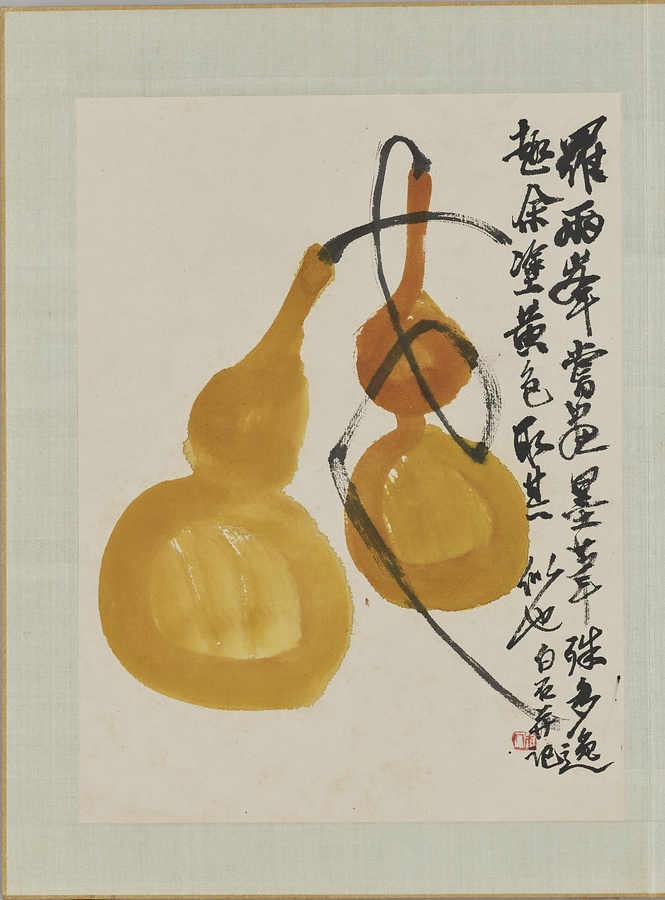 羅兩峯嘗畫墨葫蘆殊多逸
趣余塗黃色取其似也白石并記